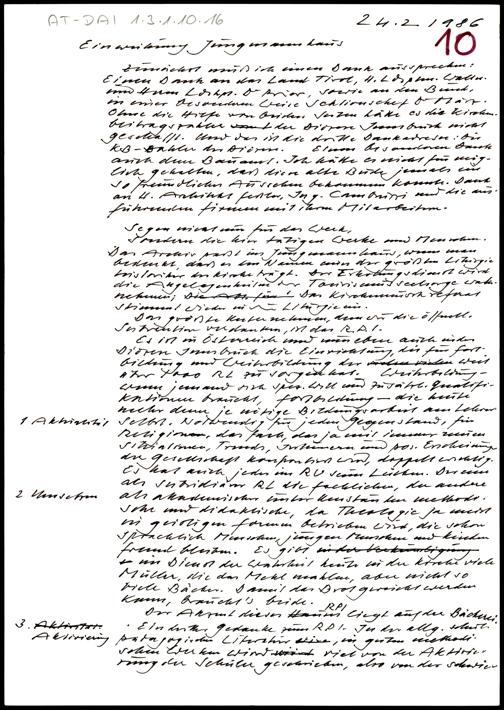 AT-DAI 1.3.1.10.16
24.2.1986
10
Einweihung Jungmannhaus
Zunächst muß ich einen Dank aussprechen:
Einen Dank an das Land Tirol, H. Ldshptm. Wallnöfer
und Herrn Ldshpt. Dr Prior, sowie an den Bund,
in einer besonderen Weise Sektionschef Dr März.
Ohne die Hilfe von beiden Seiten hätte es die Kirchen-
beitragszahler der Diözese Innsbruck nicht
geschafft. Und das ist die dritte Dankadresse: die
KB-Zahler der Diözese. Einen besonderen Dank
auch dem Bauamt. Ich hätte es nicht für mög-
lich gehalten, daß diese alte Bude jemals ein
so freundliches Aussehen bekommen konnte. Dank
an H. Architekt Ing. und die aus-
führenden Firmen mit ihren Mitarbeitern.
Segen nicht nur für das Werk,
sondern die hier tätigen Werke und Menschen.
Das Archiv paßt ins Jungmannhaus, wenn man
bedenkt, daß es den Namen eines der größten Liturgie-
historiker der Kirche trägt. Der Erholungsdienst wird
die Angelegenheiten der Tourismusseelsorge wahr-
nehmen; Das Kirchenmusikreferat
stimmt wieder in Liturgie ein.
Das größte Unternehmen, dem wir die öffentl.
Subvention verdanken, ist das R.P.I.
Es ist in Österreich und nun eben auch in der
Diözese Innsbruck die Einrichtung, die für Fort-
bildung und Weiterbildung der weit
über 1000 RL zu sorgen hat. Weiterbildung -
wenn jemand sich spez. will und zusätzl. Qualifi-
kationen braucht, Fortbildung - die heute
mehr denn je nötige Bildungsarbeit am Lehrer
1 Aktualität selbst. Notwendig für jeden Gegenstand, für
Religion, das Fach, das ja mit immer neuen
Situationen, Trends, Irrtümern und pos. Erscheinungen
der Gesellschaft konfrontiert wird, doppelt wichtig.
Es hat auch jeder im RU seine Lücken. Der eine
als subsidiärer RL die fachlichen, der andere
2 Umsetzen als akademischer methodi-
sche und didaktische, da Theologie ja meist
in geistigen Formen betrieben wird, die schon
sprachlich Menschen, jungen Menschen und Kindern
fremd bleiben. Es gibt in der Verkündigung
im Dienst der Wahrheit heute in der Kirche viele
Müller, die das Mehl mahlen, aber nicht so
viele Bäcker. Damit das Brot gereicht werden
kann, braucht's beide.
Der Akzent dieses Hauses RPI liegt auf der Bäckerei.
3. Aktivierung Ein dritter Gedanke zum RPI. In der allg. schul-
pädagogischen Literatur, in guten methodi-
schen Werken wird viel von der Aktivie-
rung der Schüler geschrieben, also von der